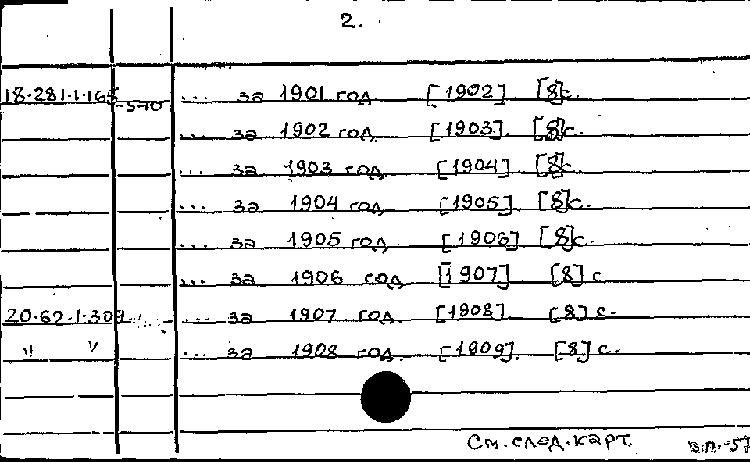 2.
18.281.1.165 5-10 ... за 1901 год [1902] [8]с.
... за 1902 год. [1903]. [8]с.
... за 1903 год, [1904] [8]с.
... за 1904 год, [1905]. [8]с.
... за 1905 год, [1906] [8]с.
... за 1906 год, [1907] [8] с
20.62.1.309 ... за 1907 год. [1908] [8] с.
" " ... за 1908 год. [1909]. [8] с.
См. след. карт.